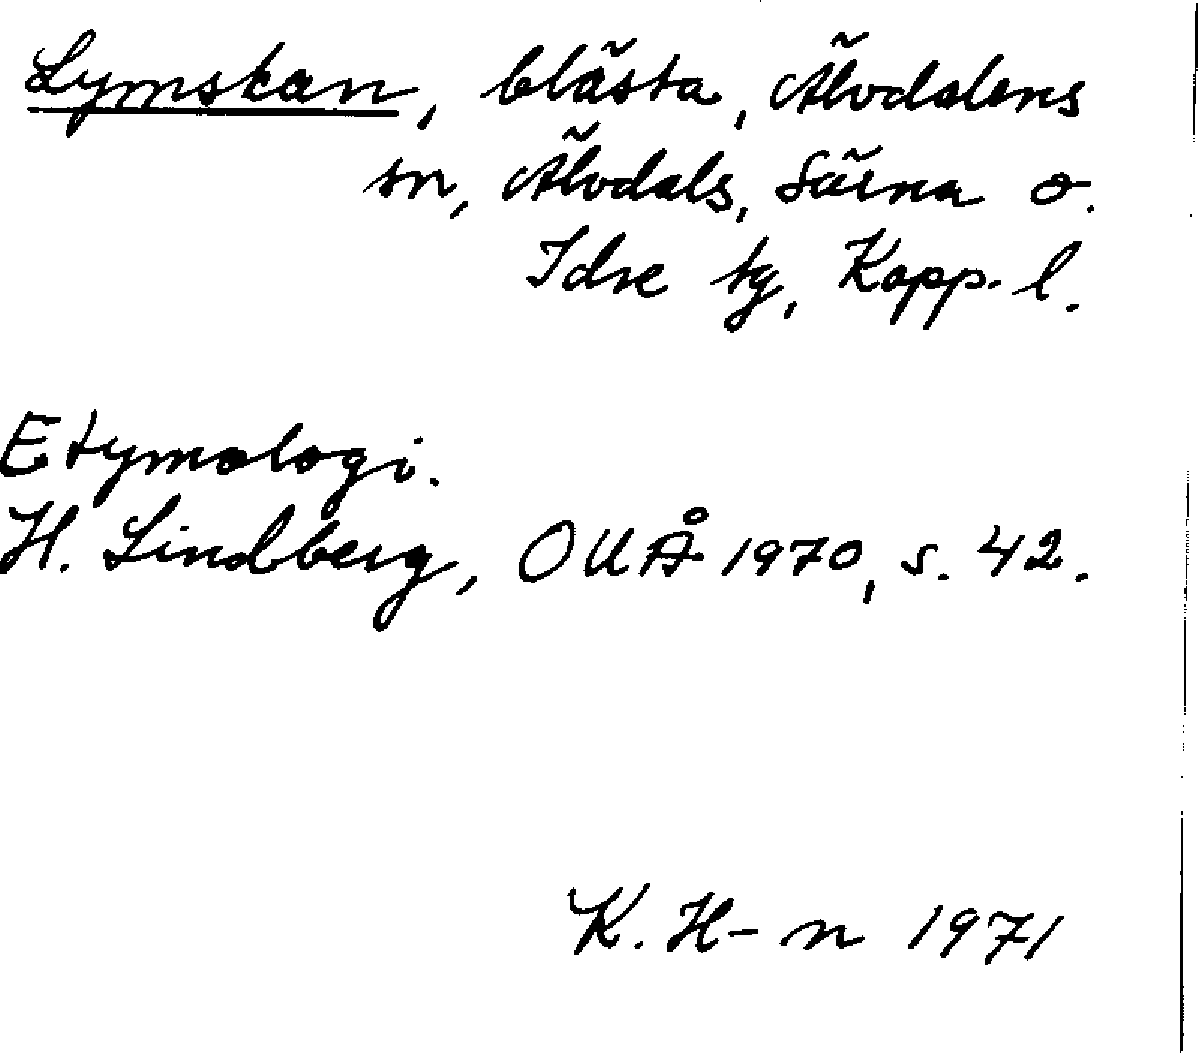 Lymskan, blästa, Älvdalens
sn, Älvdals, Särna o.
Idre tg, Kopp. l.
Etymologi.
H. Lindberg, OUÅ 1970, s. 42.
K. H-n 1971